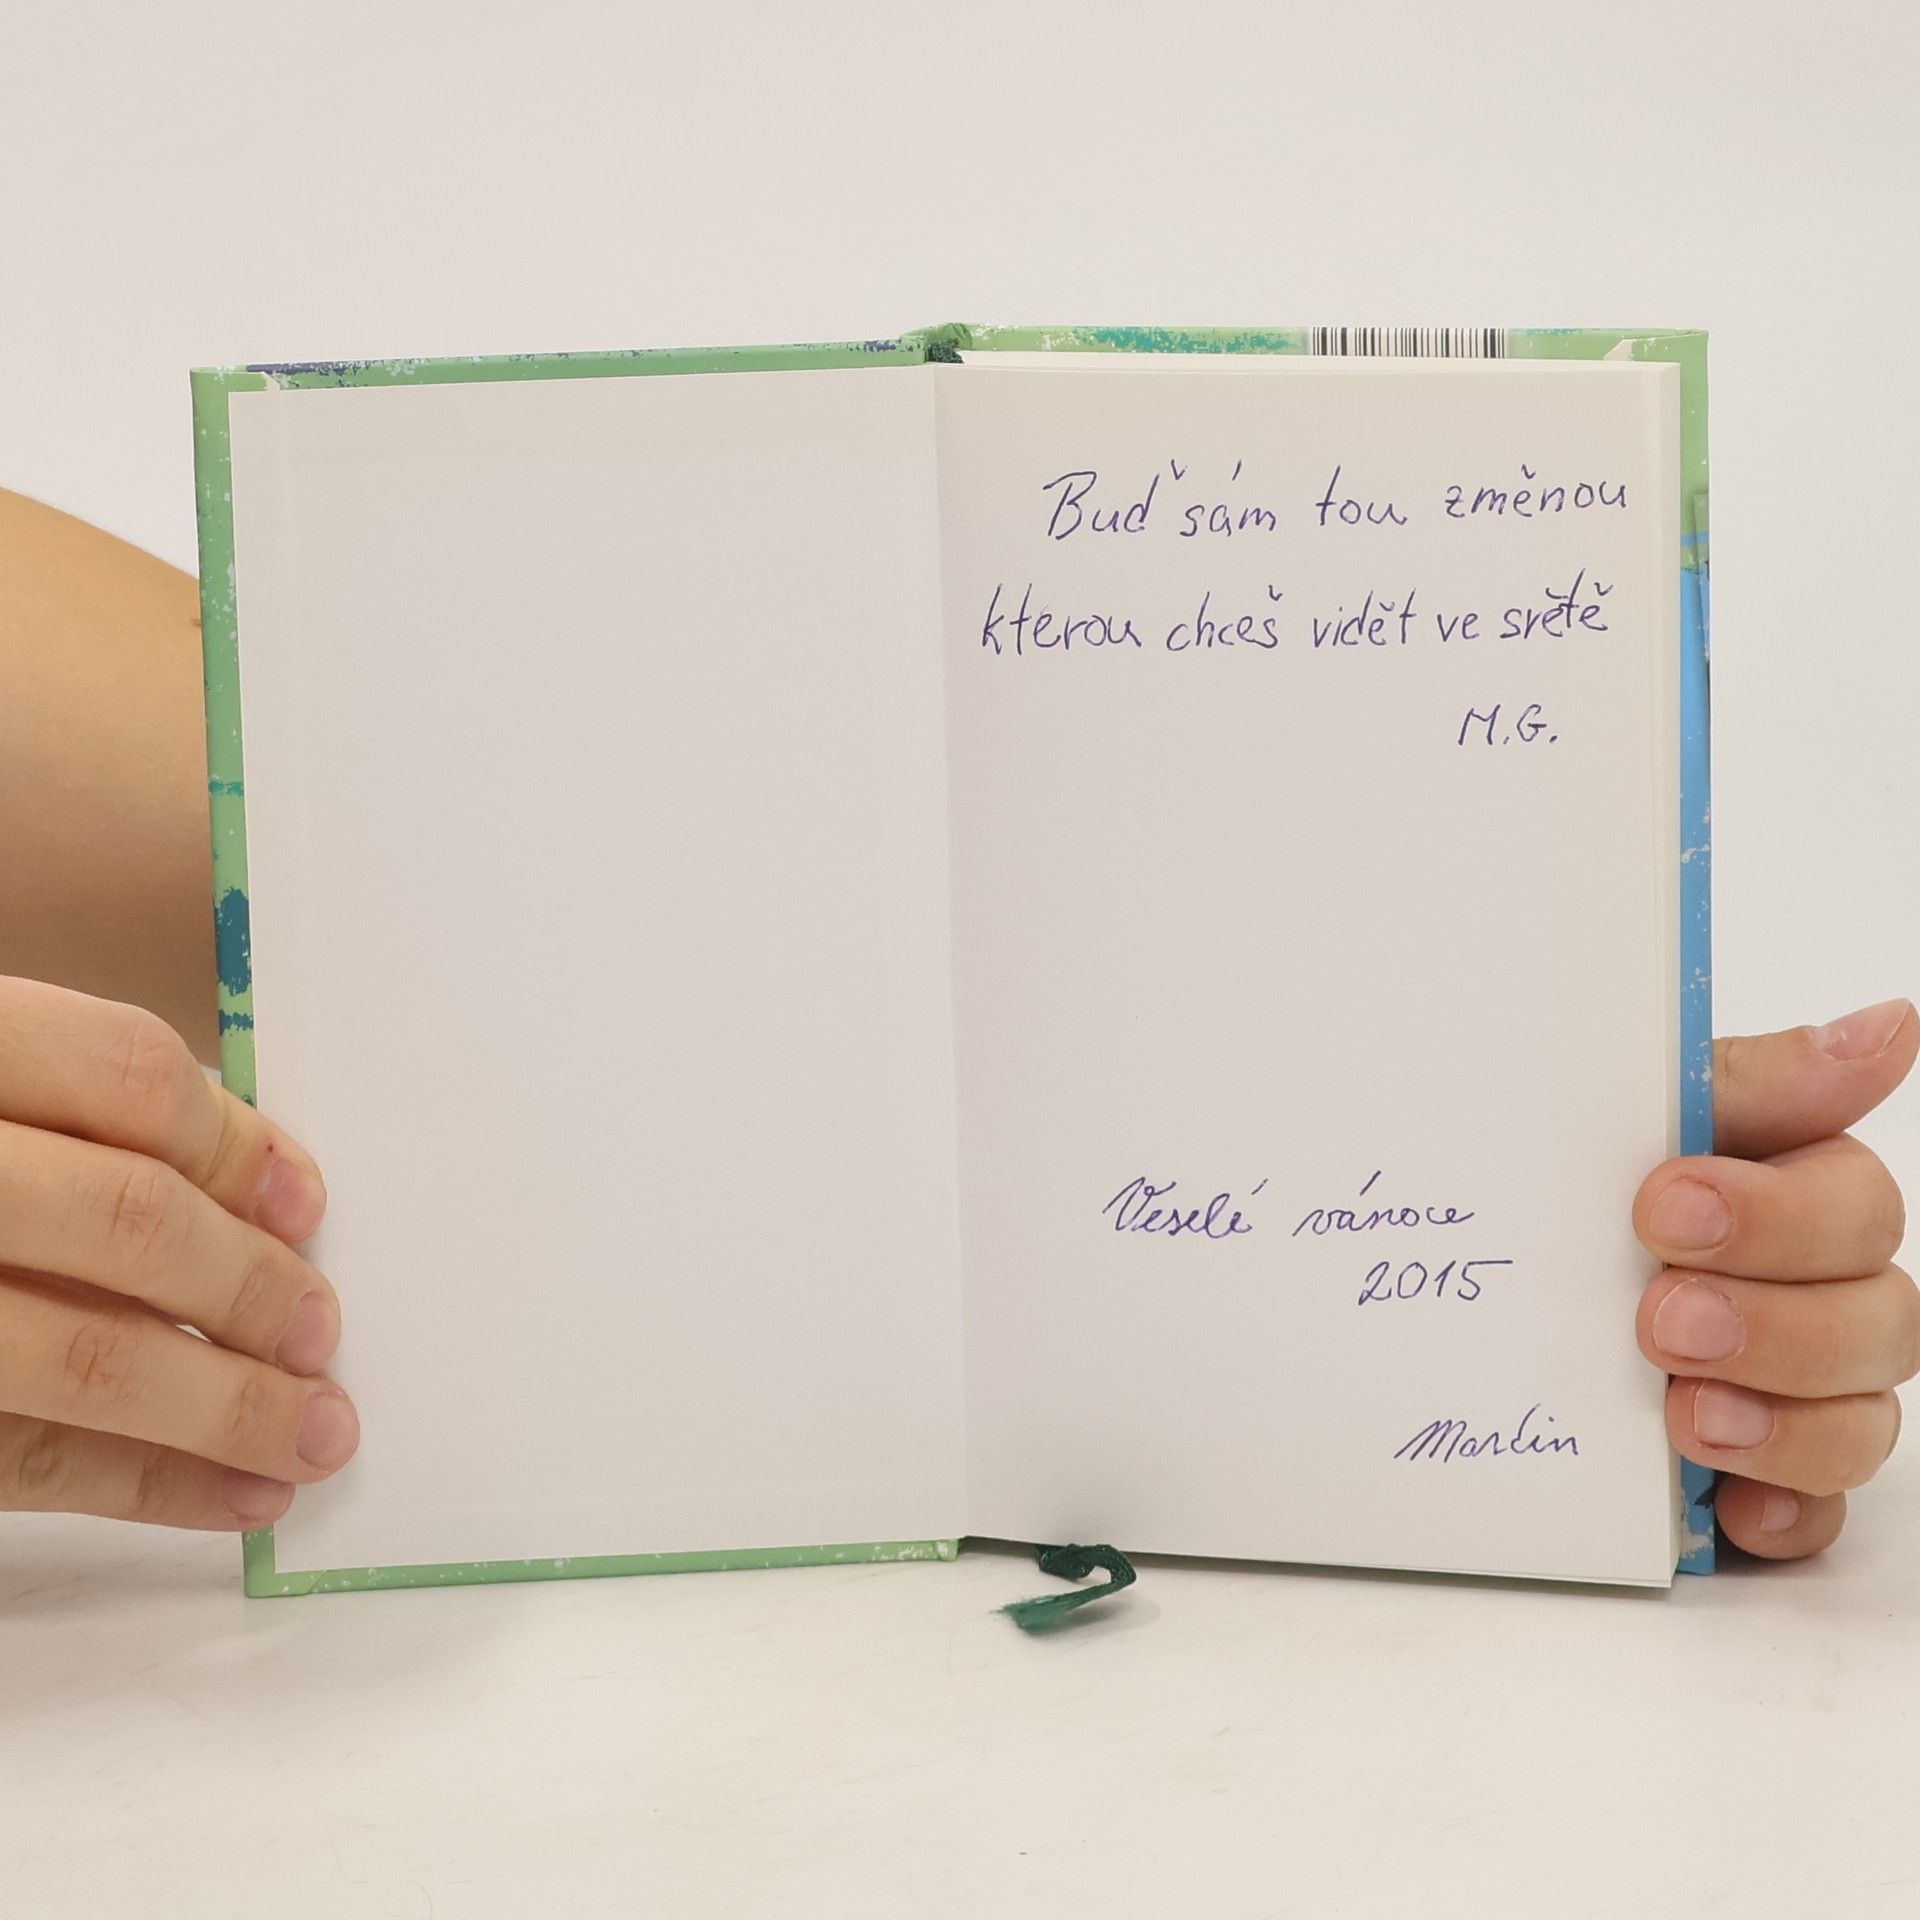 Buď sám tou změnou
kterou chceš vidět ve světě
M.G.
Veselé vánoce
2015
Martin